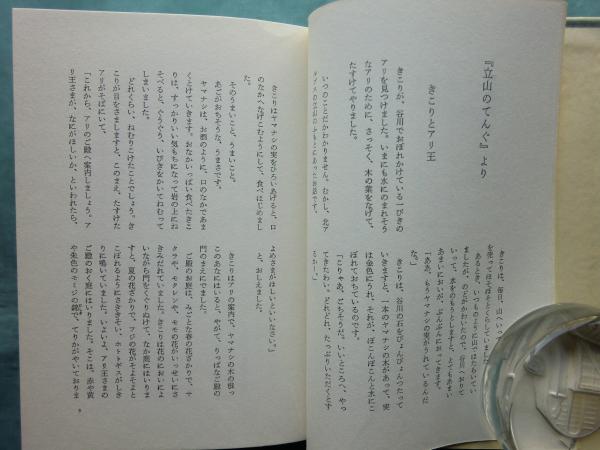 『立山のてんぐ』より
きこりとアリ王
きこりが、谷川でおぼれかけている一ぴきの
アリを見つけました。いまにも水にのまれそう
なアリのために、さっそく、木の葉をなげて、
たすけてやりました。
いつのことだかわかりません。むかし、北ア
ルプスの立山のふもとにあったお話です。
きこりは、毎日、山へいって
を売ってほそぼそとくらしていました。
あるとき、いつものように山ではたらいてい
ましたが、のどがかわいたので、谷川へおりて
いって、水をのもうとしますと、とてもあまい
あまいにおいが、ぷんぷんにおってきます。
「ああ、もうヤマナシの実がうれているんだ
な。」
きこりは、谷川の石をぴょんぴょんつたって
いきますと、一本のヤマナシの木があって、実
は金色にうれ、それが、ぽこんぽこんと水にこ
ぼれておちているのです。
「こりゃあ、ごちそうだ。いいところへ、やっ
てきたわい。どれどれ、たっぷりいただくとす
るかー。」
きこりはヤマナシの実をひろいあげると、口
のなかへなげこむようにして、食べはじめまし
た。
そのうまいこと、うまいこと。
あごがおちそうな、うまさです。
ヤマナシは、お酒のように、口のなかであま
くとけていきます。おなかいっぱい食べたきこ
りは、すっかりいい気もちになって岩の上にね
そべると、ぐうぐう、いびきをかいてねむって
しまいました。
どれぐらい、ねむりこけたことでしょう。き
こりが目をさましますと、このまえ、たすけた
アリがそばにいて、
「これから、アリのご殿へ案内しましょう。ア
リ王さまが、なにがほしいか、といわれたら、
よめさまがほしいといいなさい。」
と、おしえました。
きこりはアリの案内で、ヤマナシの木の根っ
このあなにはいると、やがて、りっぱなご殿の
門のまえにでました。
ご殿のお庭は、なごと春の花ざかりで、サ
クラや、モクレンや、モモの花がいっせいにさ
きみだれていました。きこりは花のにおいによ
いながら門をくぐりぬけて、なか庭にはいりま
すと、夏の花ざかりで、フジの花がそよそよと
こぼれるようにさきそい、ホトトギスがしき
りに鳴いていました。いよいよ、アリ王さまの
ご殿のおく庭にはいりました。そこは、赤や黄
や朱色のモミジの錦で、てりかがやいておりま
9